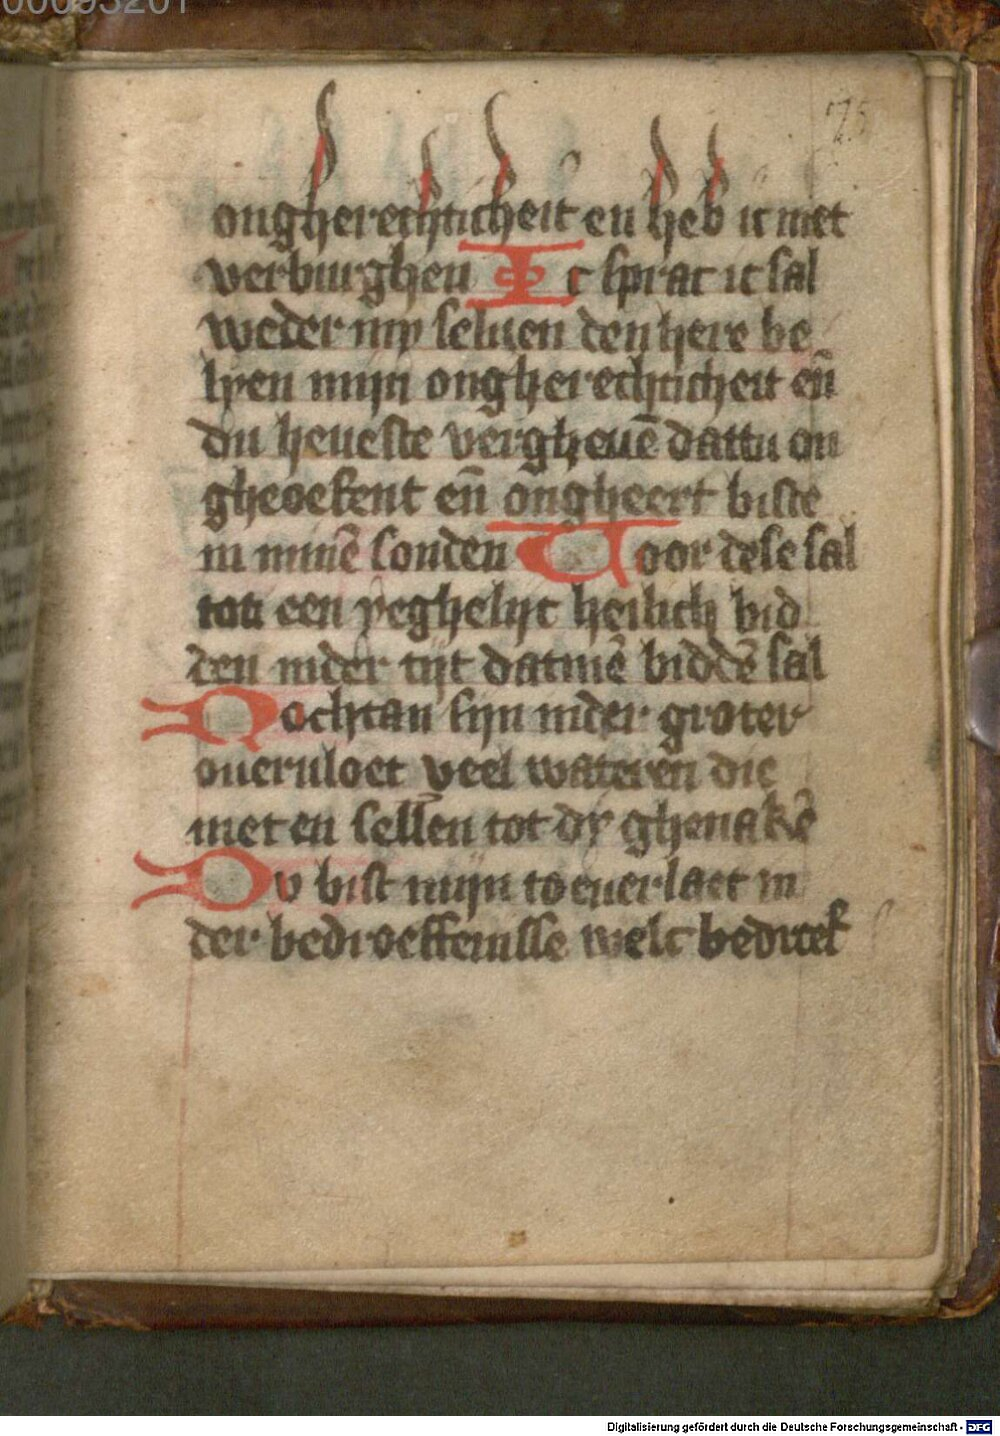 00095201
75
ongherechticheit en heb ic niet
verburghen Ic sprac ic sal
weder my seluen den here be
lyen mijn ongherechticheit en̄
du heueste vergheuē dattu on
en̄ ongheert biste
in minē sonden Uoor dese sal
een yeghelijc heilich bid
den inder tijt datmē biddē sal
Nochtan sijn inder groter
oueruloet veel wateren die
niet en sellen tot dy ghenakē
Du bist mijn toeuerlaet in
der bedroeffenisse welc
Digitalisierung gefördert durch die Deutsche Forschungsgemeinschaft - DFG